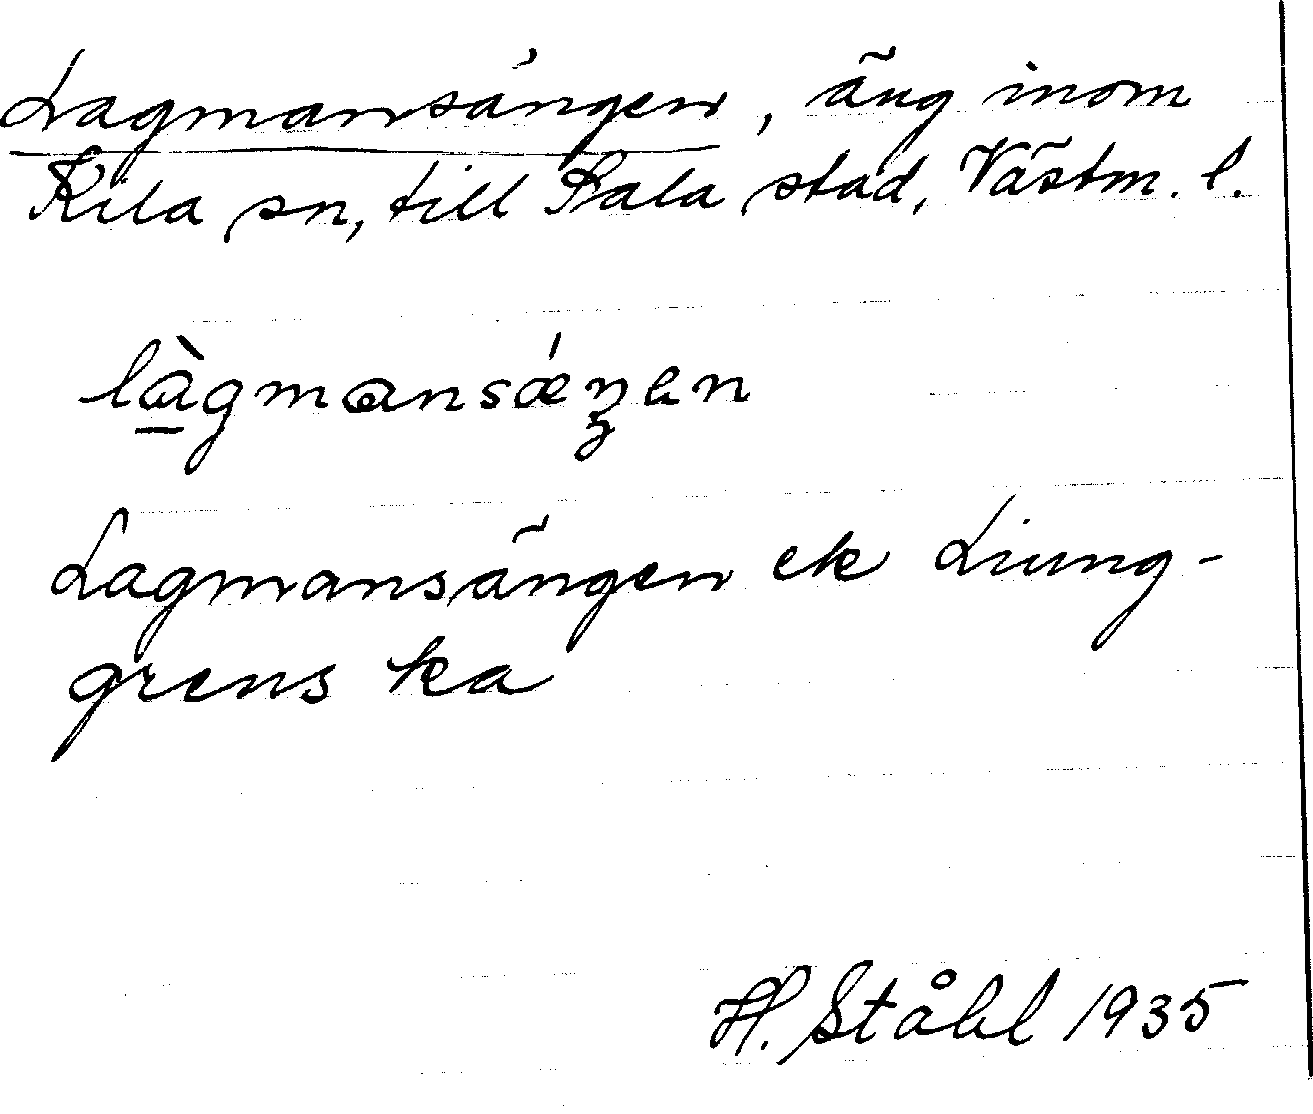 Lagmansängen, äng inom
Kila sn, till Sala stad, Västm. l.
làgmansǽŋen
Lagmansängen ek Liung-
grens ka
H. Ståhl 1935